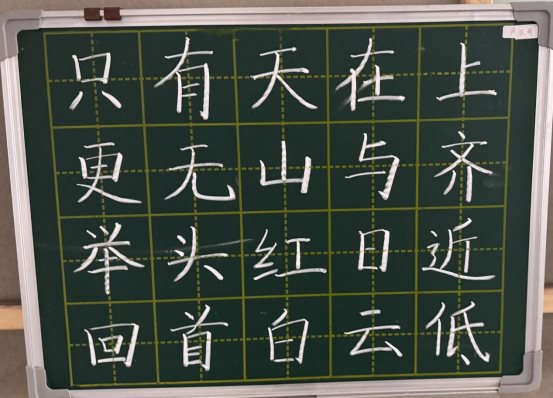 只有天在上
更无山与齐
举头红日近
回首白云低